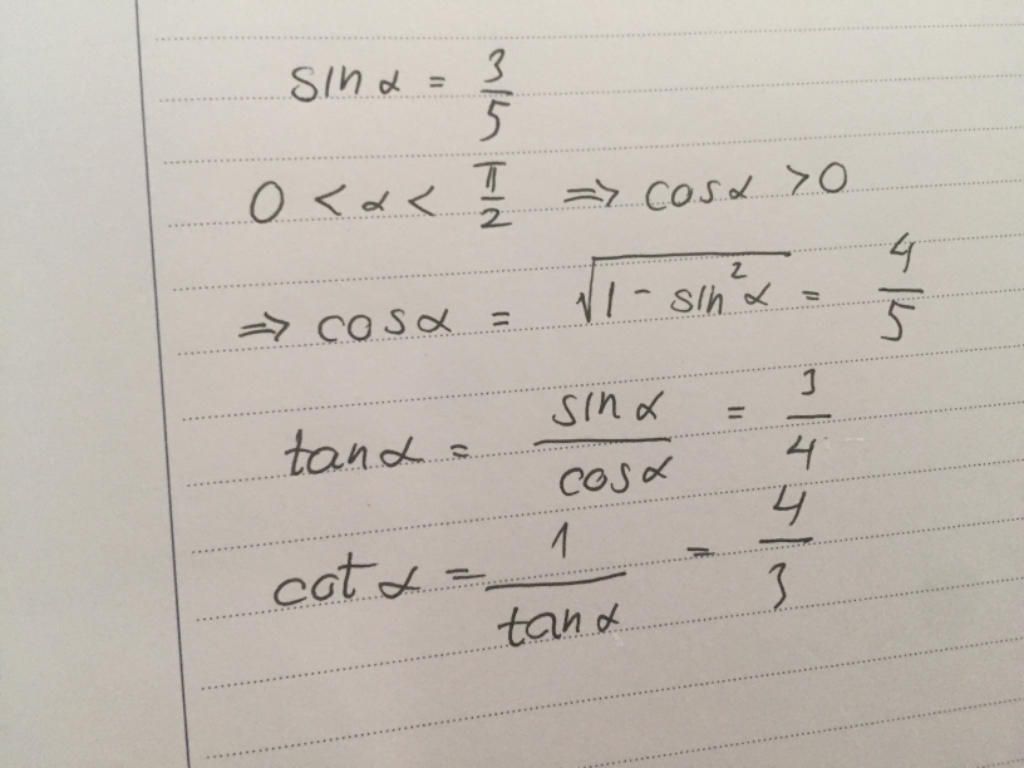 sin α = 3/5
0 < α < π/2 ⇒ cos α > 0
⇒ cos α = √(1 - sin²α) = 4/5
tan α = sin α / cos α = 3/4
cot α = 1 / tan α = 4/3